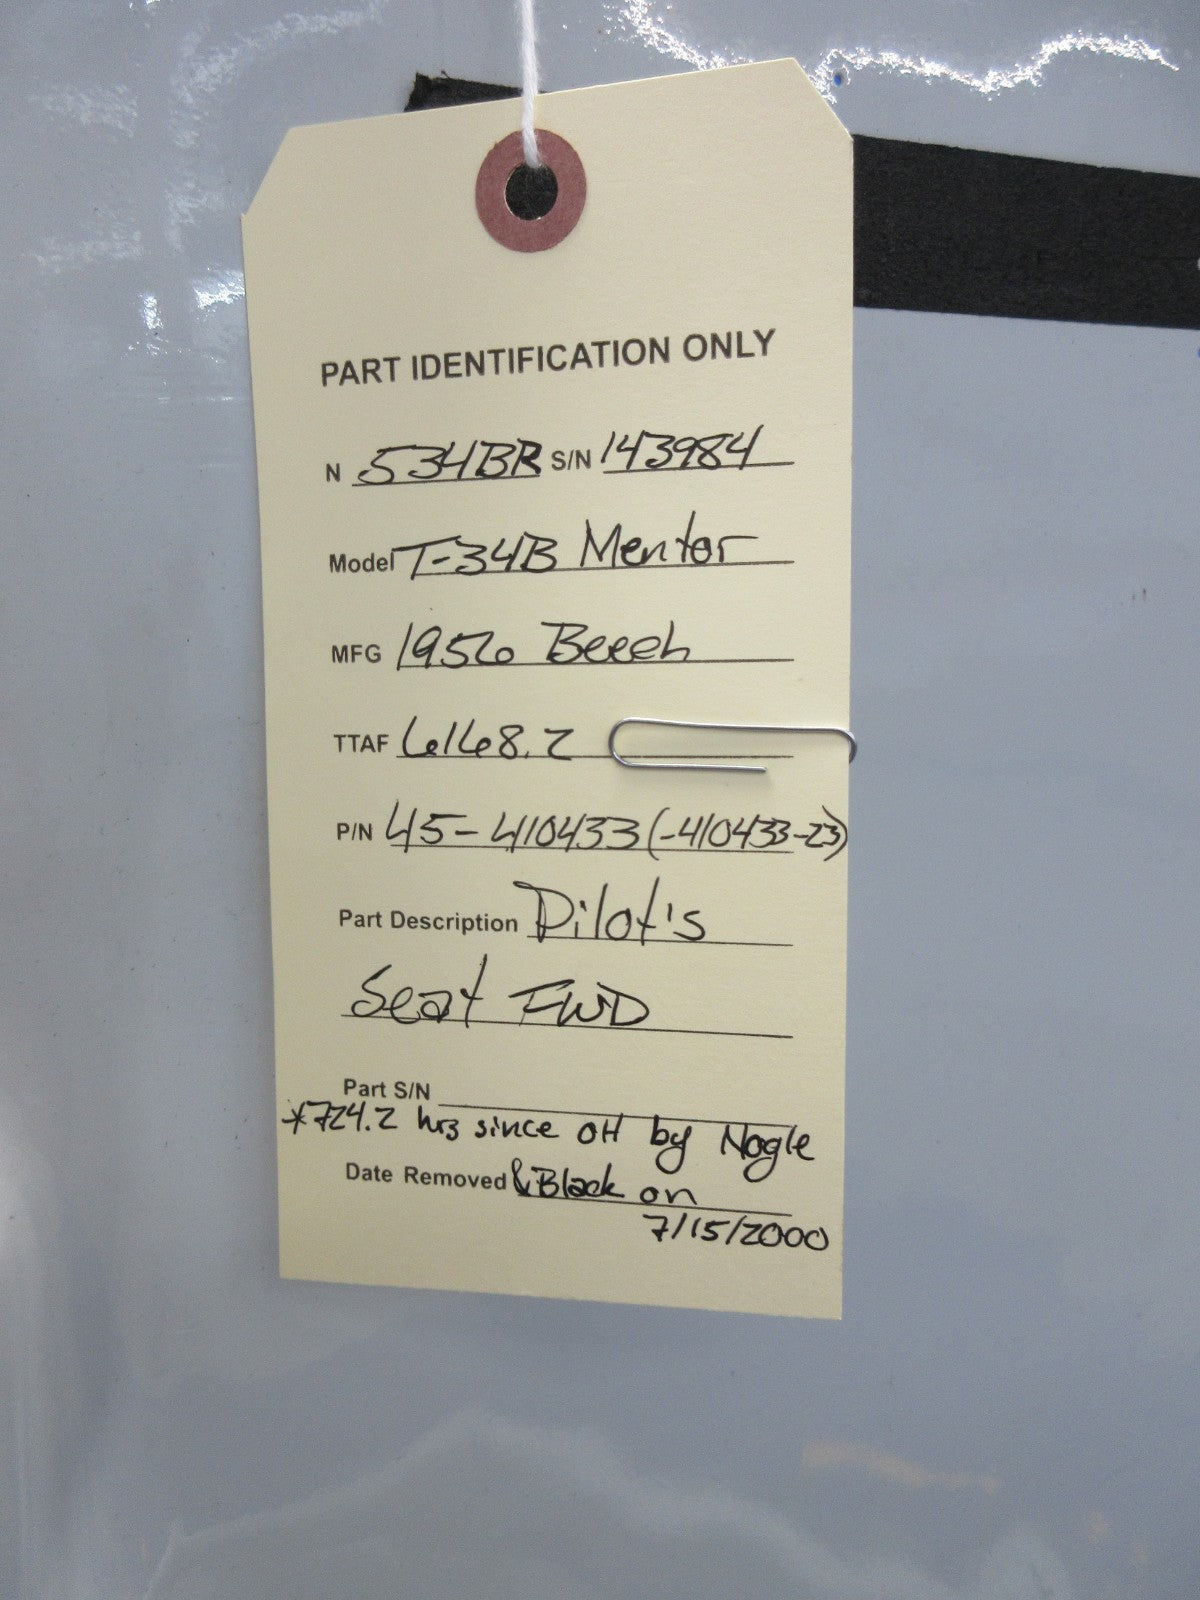 PART IDENTIFICATION ONLY
N 534BR S/N 143984
Model T-34B Mentor
MFG 1956 Beech
TTAF 6168.2
P/N 45-410433 (-410433-23)
Part Description Pilot's
Seat FWD
Part S/N
*724.2 hrs since OH by Nogle
Date Removed & Black on
7/15/2000